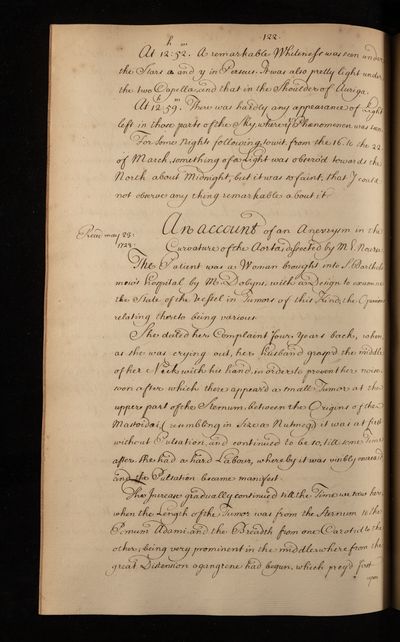 122
h m
At 12:52. A remarkable Whiteness was seen under
the Stars α and γ in Perseus. It was also pretty light under
the two Capella, and that in the Shoulder of Auriga.
h m
At 12:59. There was hardly any appearance of Light
left in those parts of the Sky, where ye Phænomenon was seen
For some Nights following, to wit from the 16. to the 22.
of March, something of a Light was observ'd towards the
North about Midnight, but it was so faint, that I could
not observe any thing remarkable about it
An account of an Anevrysm in the
Read may 23:
1723:
Curvature of the Aorta, dissected by Mr.
The Patient was a Woman brought into St. Bartholo
mew's hospital by Mr. Dobyns, with a Design to examine
the State of the Vessel in Tumors of this Kind, the Opinions
relating thereto being various
She dated her Complaint four Years back, when,
as she was crying out, her husband grasp'd the middle
of her Neck with his hand, in order to prevent her noise.
soon after which there appear'd a small Tumor at the
upper part of the Sternum, between the Origins of the
Mastoidæi (resembling in size a Nutmeg) it was at first
without Pulsation, and continued to be so, till some Time
after, she had a hard Labour, whereby it was visibly
and the Pulsation became manifest.
This Increase gradually continued till the Time we saw her
when the Length of the Tumor was from the Sternum to the
Pomum Adami, and the Breadth from one Carotid to the
other, being very prominent in the middle where from the
great Distension a gangrene had begun, which prey'd first
upon